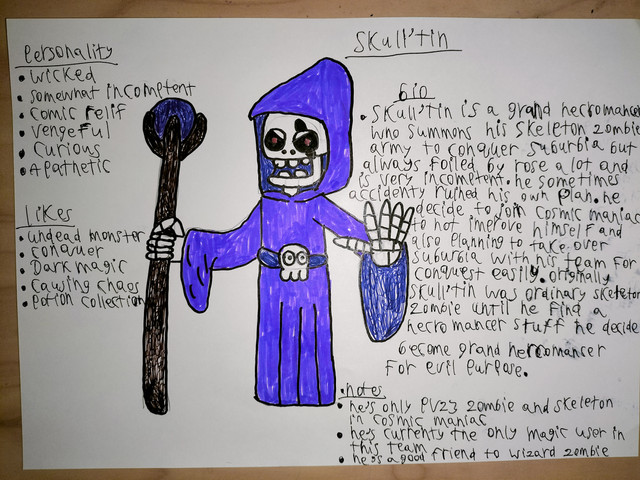 Personality
• wicked
• somewhat incompetent
• comic relif
• vengeful
• curious
• Apathetic
Likes
• undead monster
• conquer
• Dark magic
• Cawing chaos
• Potion collection
Skull'tin
bio
• Skull'tin is a grand necromancer
who summons his skeleton zombie
army to conquer suburbia but
always foiled by rose a lot and
is very incometent. he sometimes
accidenty ruined his own plan. he
decide to join cosmic maniac
to not imerove himself and
also planning to take over
suburbia with his team for
conquest easily. originally
Skull'tin was ordinary skeleton
zombie until he find a
necromancer stuff he decide
become grand necromancer
for evil purpose.
• notes
• he's only PVZ3 zombie and skeleton
in cosmic maniac
• he's currenty the only magic user in
this team
• he is a good friend to wizard zombie